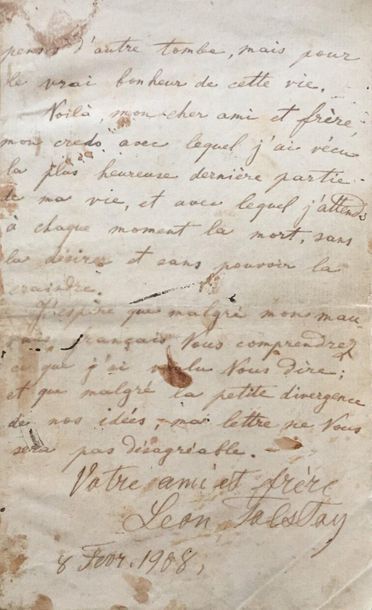 penses d'autre tombe, mais pour
le vrai bonheur de cette vie.
Voilà, mon cher ami et frère
mon credo avec lequel j'ai vécu
la plus heureuse dernière partie
de ma vie, et avec lequel j'attends
à chaque moment la mort, sans
la désirer et sans pouvoir la
craindre.
J'espère que malgré mon mau-
vais français Vous comprendrez
ce que j'ai voulu Vous dire;
et que malgré la petite divergence
de nos idées ma lettre ne Vous
sera pas désagréable. —
Votre ami et frère
Léon Tolstoy
8 Fevr. 1908,